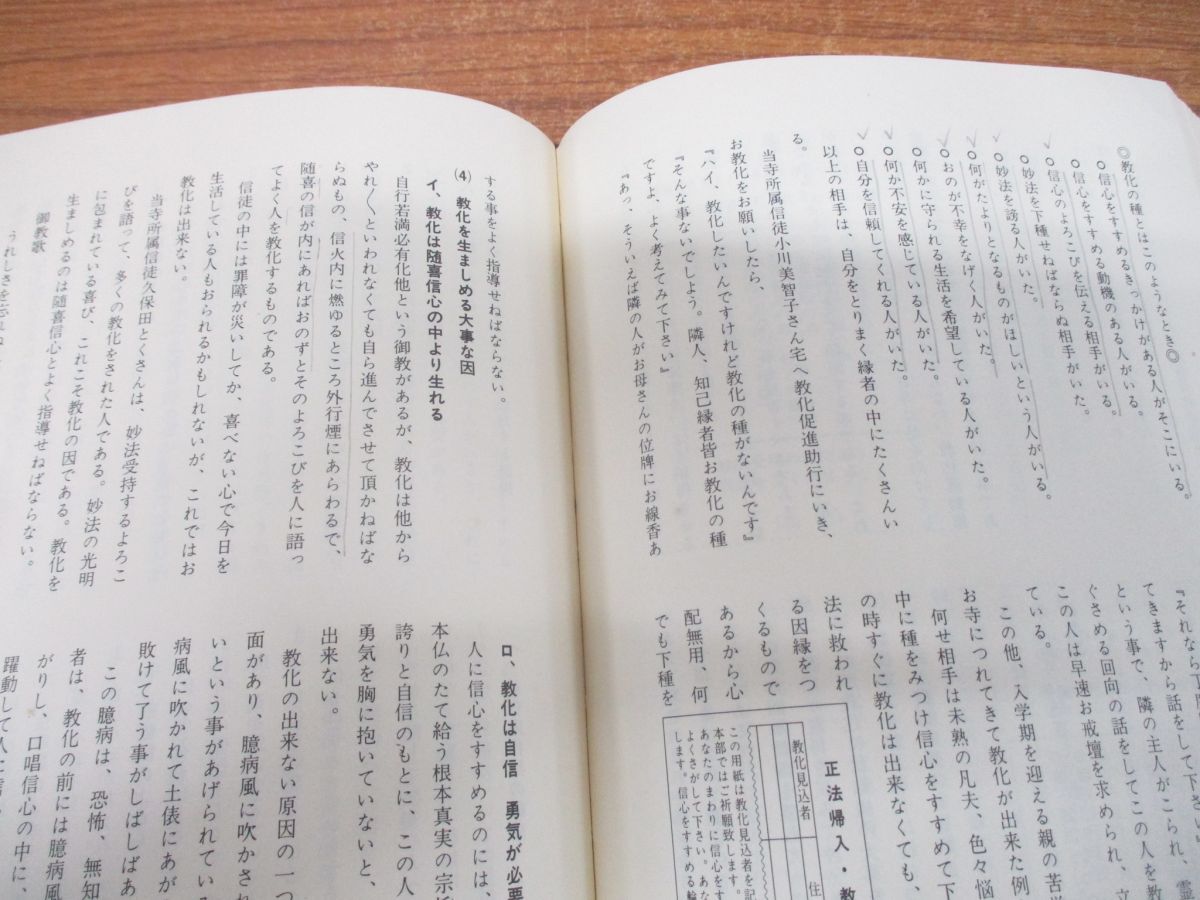 ◎教化の種とはこのようなとき◎
○信心をすすめるきっかけがある人がそこにいる。
○信心をすすめる動機のある人がいる。
○信心のよろこびを伝える相手がいる。
○妙法を下種せねばならぬ相手がいた。
○妙法を謗る人がいた。
○何かたよりとなるものがほしいという人がいる。
○おのが不幸をなげく人がいた。
○何かに守られる生活を希望している人がいた。
○何か不安を感じている人がいた。
○自分を信頼してくれる人がいた。
以上の相手は、自分をとりまく縁者の中にたくさんい
る。
当寺所属信徒小川美智子さん宅へ教化促進助行にいき、
お教化をお願いしたら、
『ハイ、教化したいんですけれど教化の種がないんです』
『そんな事ないでしよう。隣人、知己縁者皆お教化の種
ですよ、よく考えてみて下さい』
『あっ、そういえば隣の人がお母さんの位牌にお線香あ
『それなら下
てきますから話をして下さ
という事で、隣の主人がこられ、霊
ぐさめる回向の話をしてこの人を教
この人は早速お戒壇を求められ、立
ている。
この他、入学期を迎える親の苦労
お寺につれてきて教化が出来た例
何せ相手は未熟の凡夫、色々悩
中に種をみつけ信心をすすめて下
の時すぐに教化は出来なくても、
法に救われ
る因縁をつ
くるもので
あるから心
配無用、何
でも下種を
正法帰入・教
教化見込者
住
この用紙は教化見込者を記
本部ではご祈願致します。
あなたのまわりに信心をす
よくさがして下さい。あな
します。信心をすすめる輪
する事をよく指導せねばならない。
(4) 教化を生ましめる大事な因
イ、教化は随喜信心の中より生れる
自行若満必有化他という御教があるが、教化は他から
やれ〳〵といわれなくても自ら進んでさせて頂かねばな
らぬもの、信火内に燃ゆるところ外行煙にあらわるで、
随喜の信が内にあればおのずとそのよろこびを人に語っ
てよく人を教化するものである。
信徒の中には罪障が災いしてか、喜べない心で今日を
生活している人もおられるかもしれないが、これではお
教化は出来ない。
当寺所属信徒久保田とくさんは、妙法受持するよろこ
びを語って、多くの教化をされた人である。妙法の光明
に包まれている喜び、これこそ教化の因である。教化を
生ましめるのは随喜信心とよく指導せねばならない。
御教歌
うれしさを忘れね
ロ、教化は自信 勇気が必要
人に信心をすすめるのには、
本仏のたて給う根本真実の宗
誇りと自信のもとに、この人
勇気を胸に抱いていないと、
出来ない。
教化の出来ない原因の一つ
面があり、臆病風に吹かされ
いという事があげられてい
病風に吹かれて土俵にあが
敗けて了う事がしばしばあ
この臆病は、恐怖、無知
者は、教化の前には臆病風
がりし、口唱信心の中に、
躍動して人に信